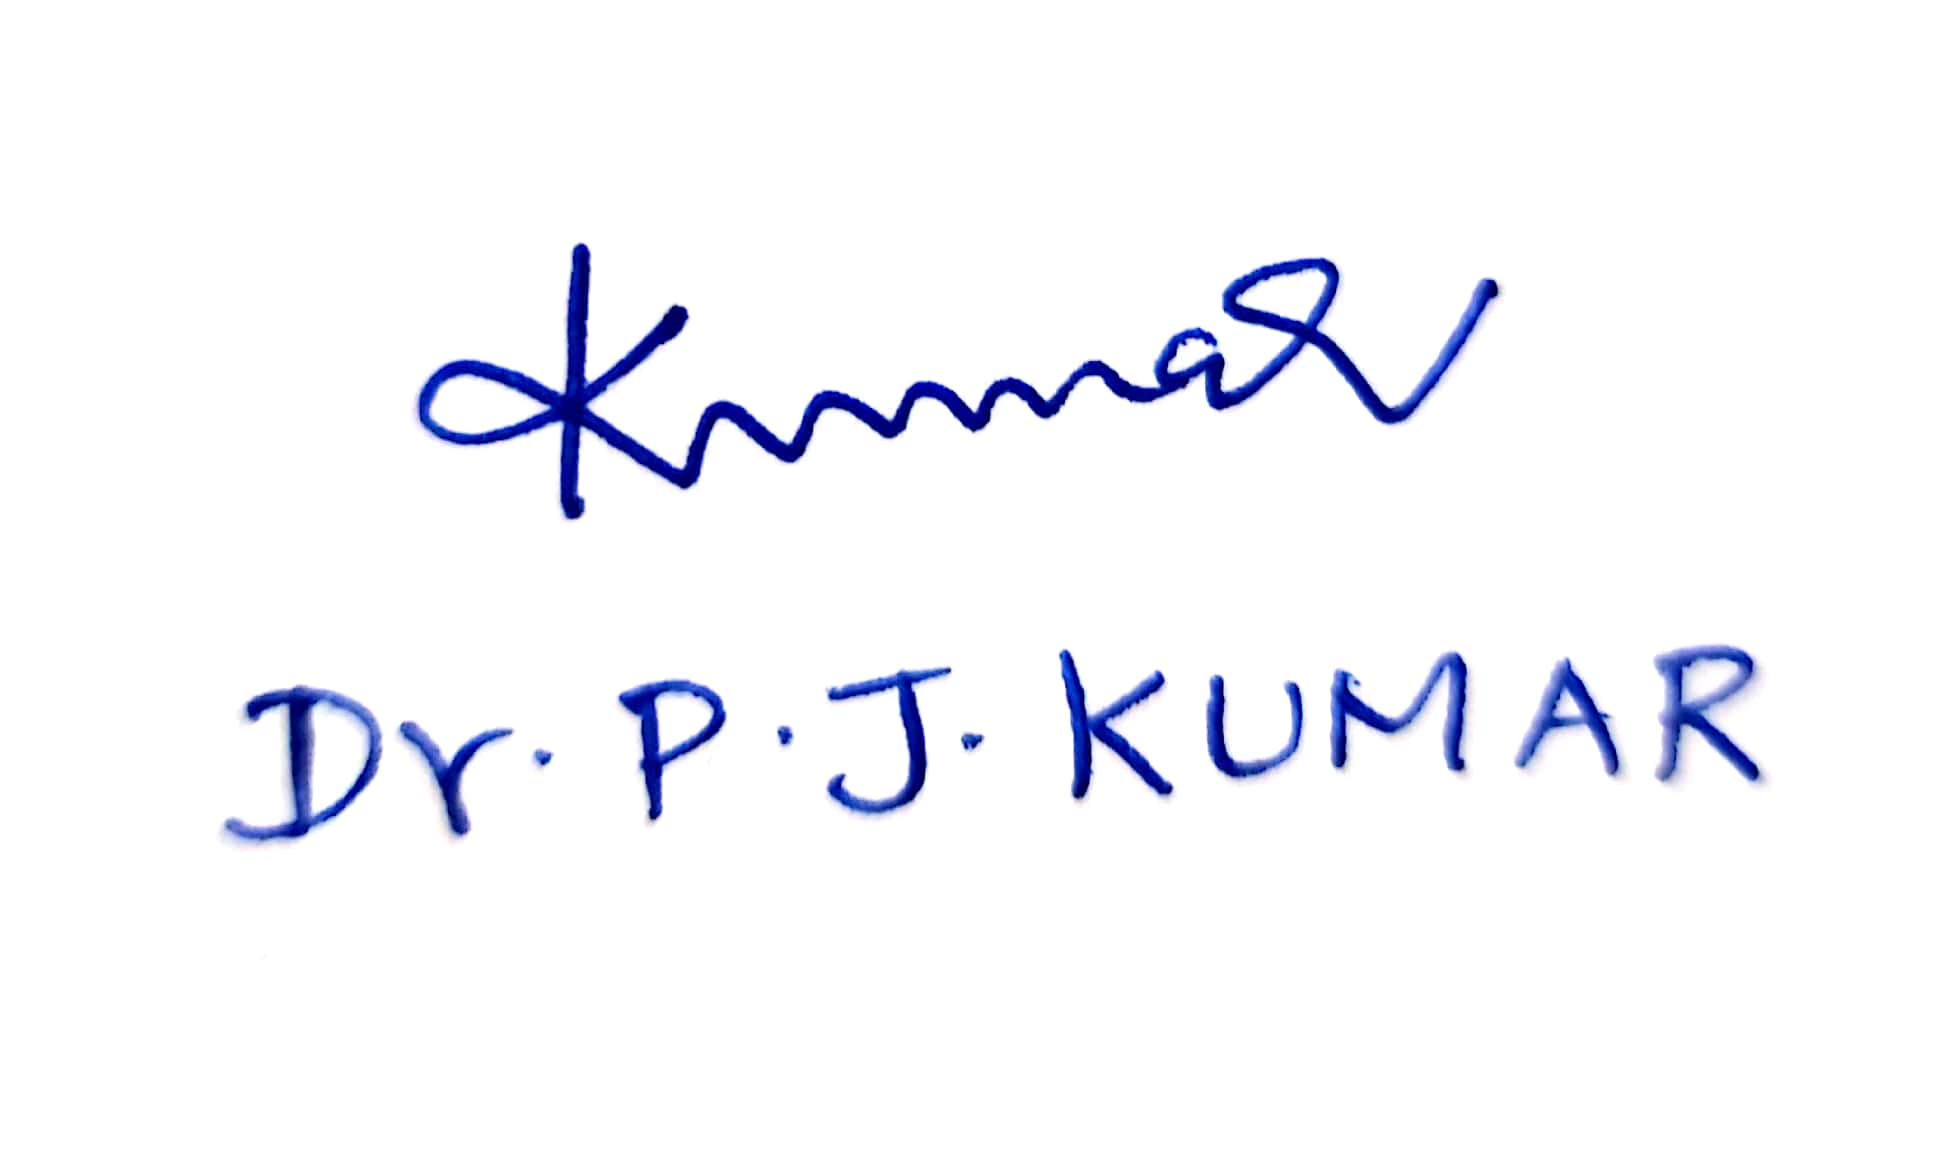 Kumar
Dr. P. J. KUMAR